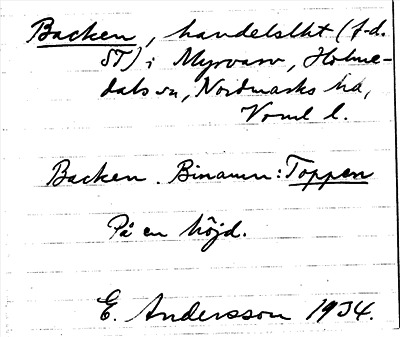 Backen, handelslht (f.d.
ST) i Myrvarv, Holme-
dals sn, Nordmarks hd,
Vrml l.
Backen. Binamn: Toppen
På en höjd.
E. Andersson 1934.